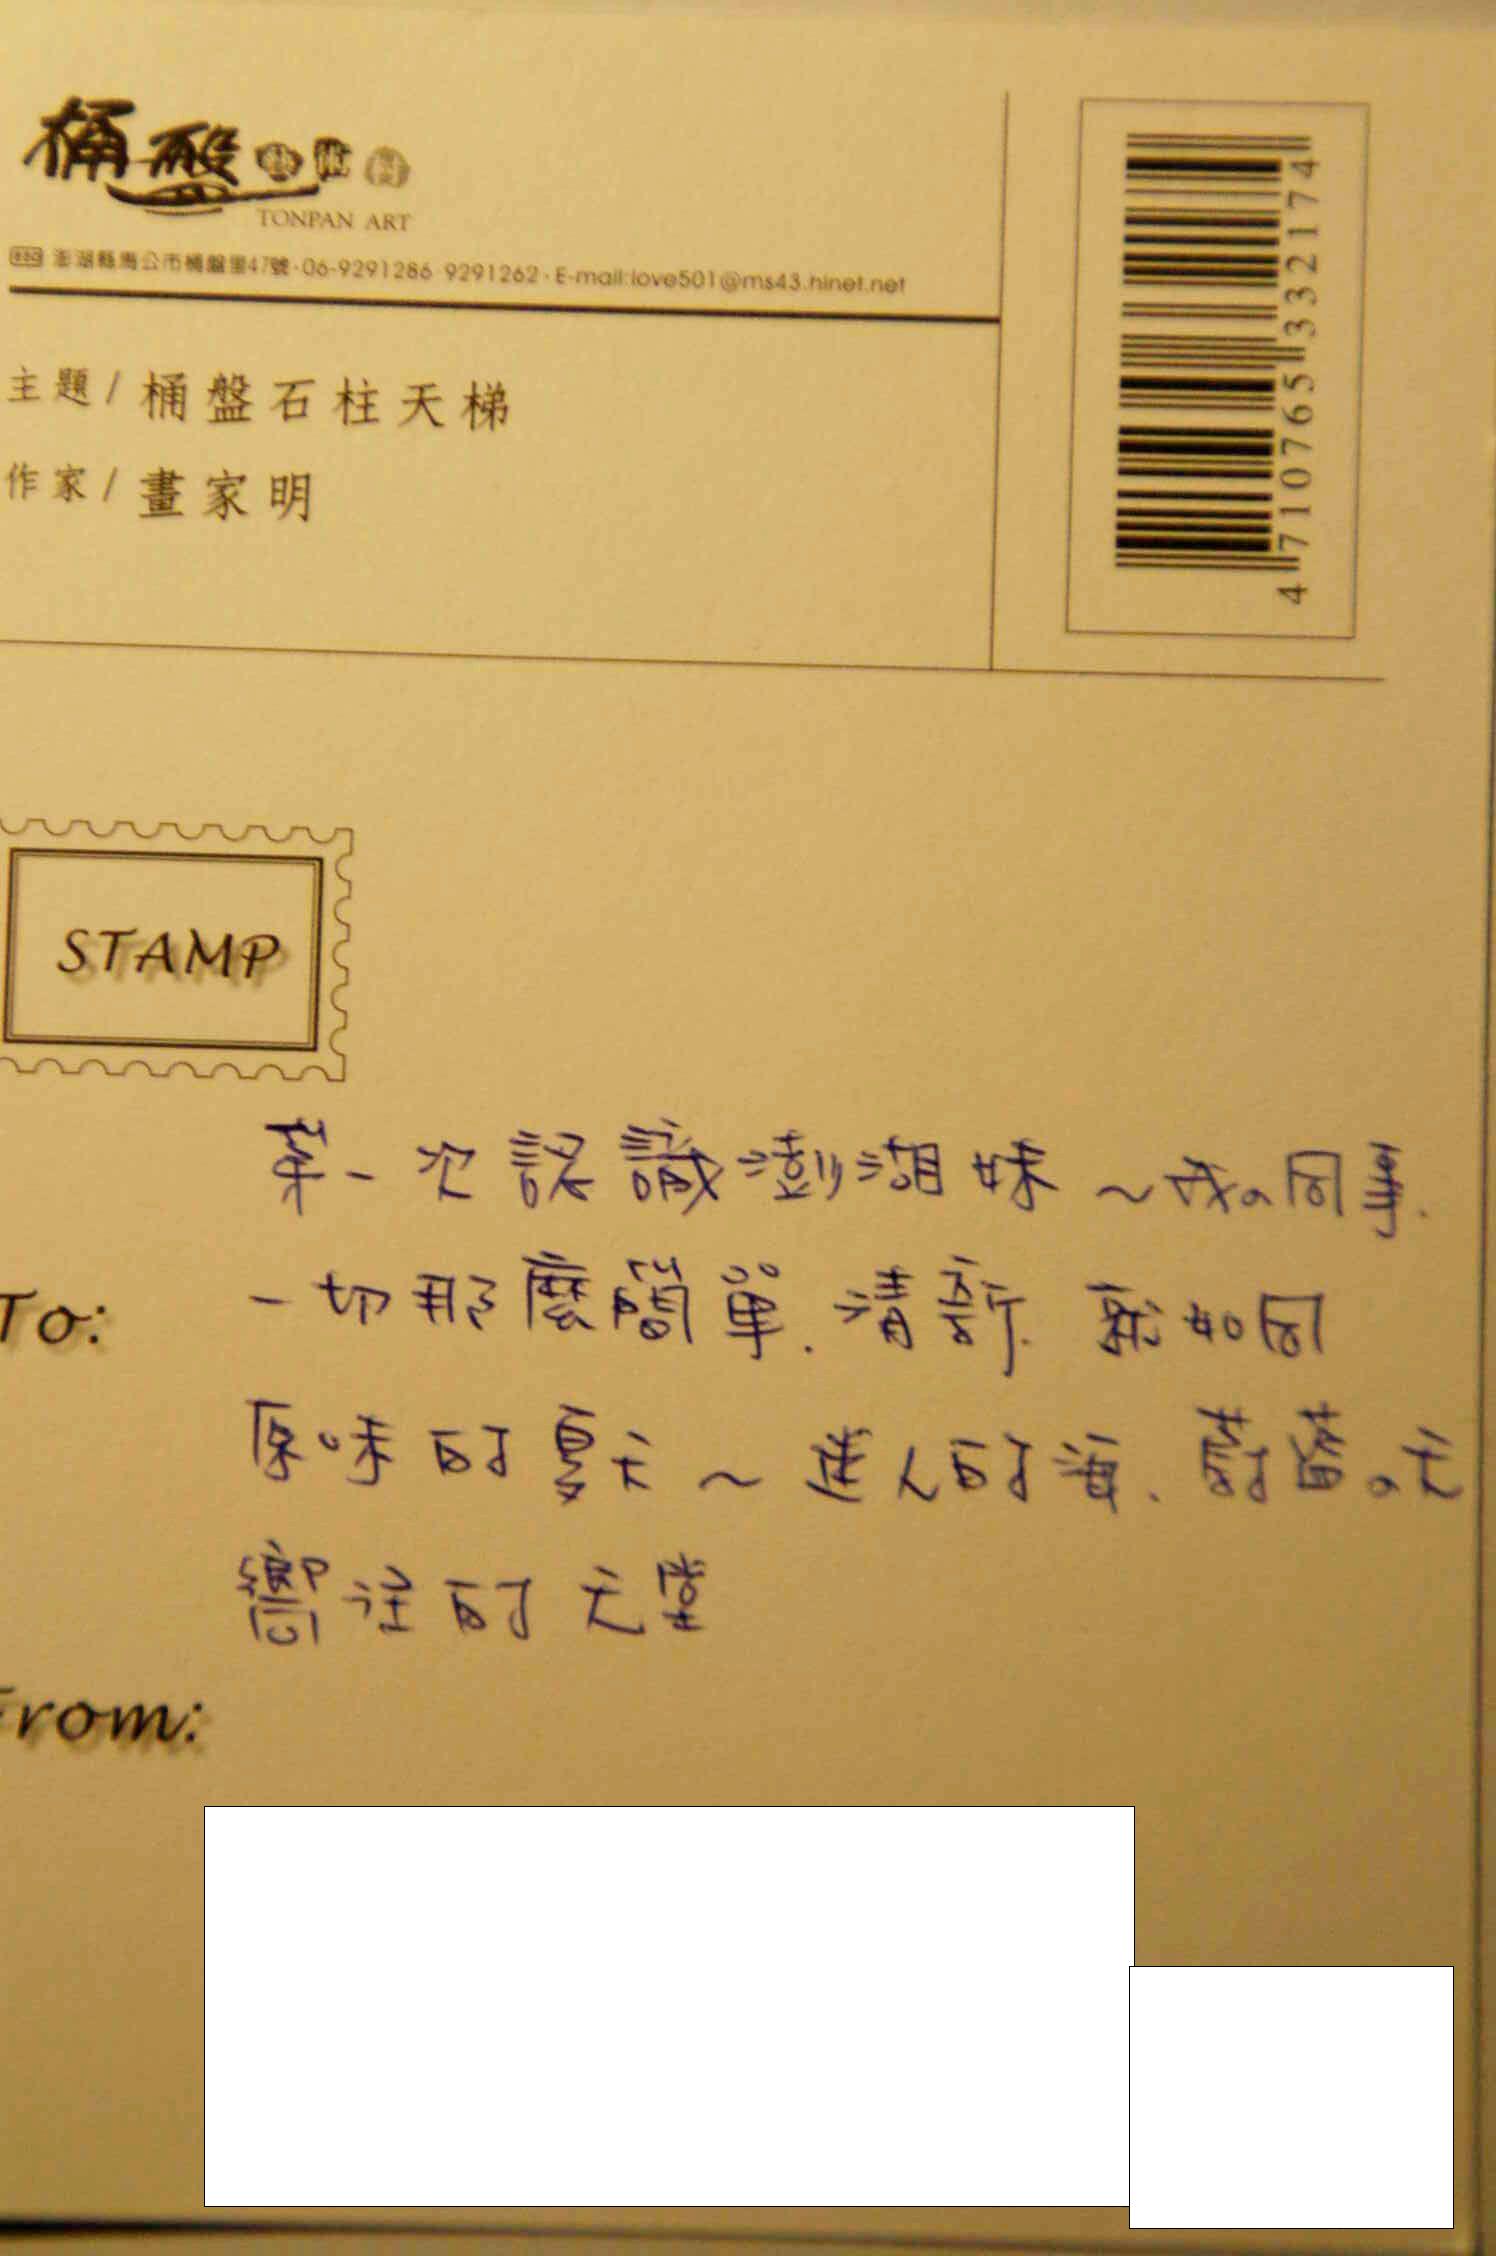 桶盤藝術村
TONPAN ART
880 澎湖縣馬公市桶盤里47號·06-9291286 9291262·E-mail:love501@ms43.hinet.net
主題/桶盤石柱天梯
作家/畫家明
4 710765 332174
STAMP
第一次認識澎湖妹～我の同事.
To:
一切那麼簡單.清新.就如同
原味的夏天～迷人的海.蔚藍の天
嚮往的天堂
From: